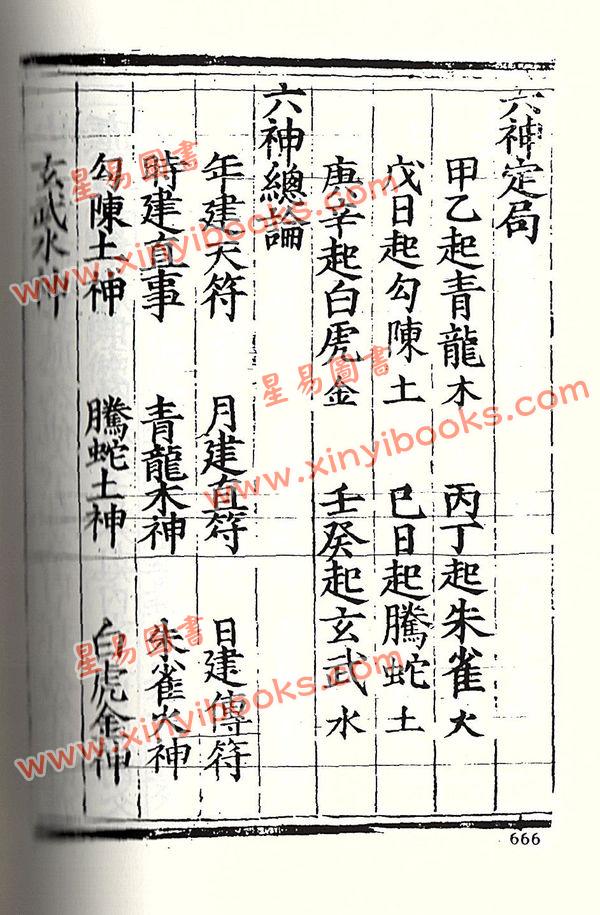 六神定局
甲乙起青龍木 丙丁起朱雀火
戊日起勾陳土 巳日起騰蛇土
庚辛起白虎金 壬癸起玄武水
六神總論
年建天符 月建直符 日建傳符
時建直事 青龍木神 朱雀火神
勾陳土神 騰蛇土神 白虎金神
玄武水神
666
星易圖書
www.xinyibooks.com
星易圖書
www.xinyibooks.com
星易圖書
www.xinyibooks.com